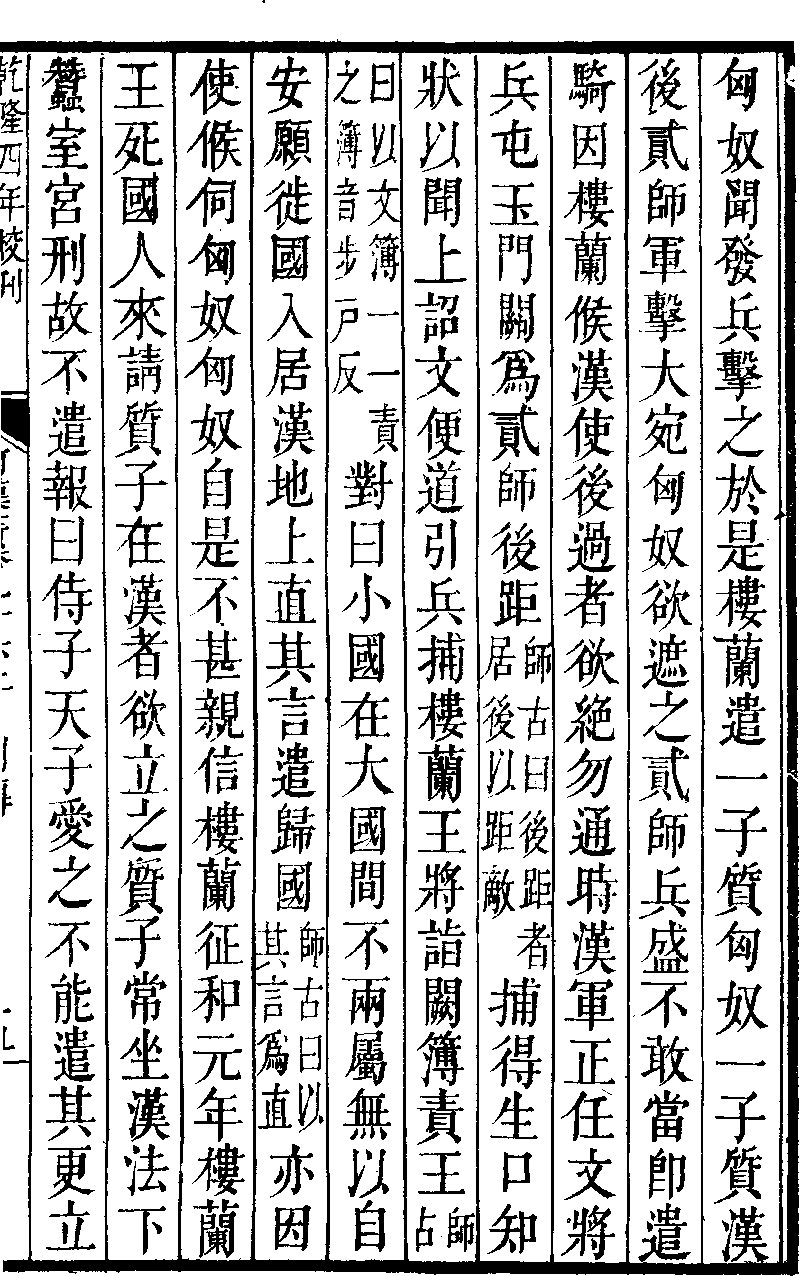 匈奴聞發兵擊之於是樓蘭遣一子質匈奴一子質漢
後貳師軍擊大宛匈奴欲遮之貳師兵盛不敢當卽遣
騎因樓蘭候漢使後過者欲絶勿通時漢軍正任文將
兵屯玉門關爲貳師後距師古曰後距者居後以距敵捕得生口知
狀以聞上詔文便道引兵捕樓蘭王將詣闕簿責王師古
曰以文簿一一責之簿音步戸反對曰小國在大國間不兩屬無以自
安願徙國入居漢地上直其言遣歸國師古曰以其言爲直亦因
使候伺匈奴匈奴自是不甚親信樓蘭征和元年樓蘭
王死國人來請質子在漢者欲立之質子常坐漢法下
蠶室宮刑故不遣報曰侍子天子愛之不能遣其更立
乾隆四年校刊